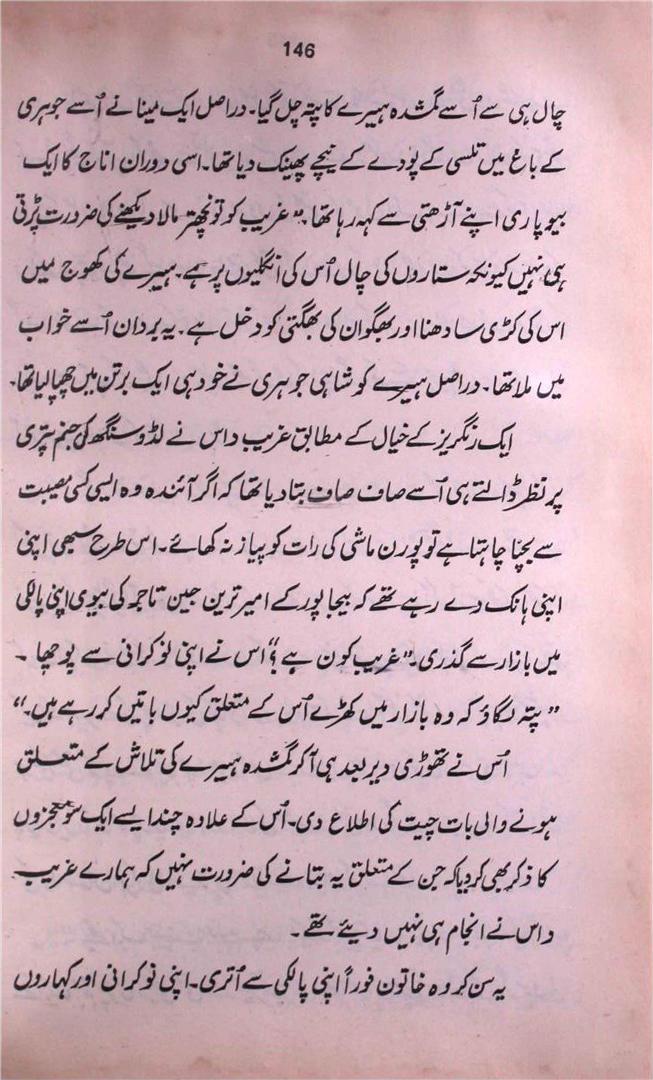 146
چال ہی سے اُسے گمشدہ ہیرے کا پتہ چل گیا۔ دراصل ایک مینا نے اُسے جوہری
کے باغ میں تلسی کے پودے کے نیچے پھینک دیا تھا۔ اسی دوران اناج کا ایک
بیوپاری اپنے آڑھتی سے کہہ رہا تھا۔ "غریب کو تو نچھتر مالا دیکھنے کی ضرورت پڑتی
ہی نہیں کیونکہ ستاروں کی چال اُس کی انگلیوں پر ہے۔ ہیرے کی کھوج میں
اس کی کڑی سادھنا اور بھگوان کی بھگتی کو دخل ہے۔ یہ بردان اُسے خواب
میں ملا تھا۔ دراصل ہیرے کو شاہی جوہری نے خود ہی ایک برتن میں چھپا لیا تھا۔
ایک رنگریز کے خیال کے مطابق غریب داس نے لڈو سنگھ کی جنم پتری
پر نظر ڈالتے ہی اُسے صاف صاف بتا دیا تھا کہ اگر آئندہ وہ ایسی کسی مصیبت
سے بچنا چاہتا ہے تو پورن ماشی کی رات کو پیاز نہ کھائے۔ اس طرح سبھی اپنی
اپنی ہانک دے رہے تھے کہ بیجاپور کے امیر ترین جین تاجر کی بیوی اپنی پالکی
میں بازار سے گذری۔ "غریب کون ہے؟" اس نے اپنی نوکرانی سے پوچھا ۔
"پتہ لگاؤ کہ وہ بازار میں کھڑے اُس کے متعلق کیوں باتیں کر رہے ہیں۔"
اُس نے تھوڑی دیر بعد ہی آکر گمشدہ ہیرے کی تلاش کے متعلق
ہونے والی بات چیت کی اطلاع دی۔ اُس کے علاوہ چند ایسے ایک سو معجزوں
کا ذکر بھی کر دیا کہ جن کے متعلق یہ بتانے کی ضرورت نہیں کہ ہمارے غریب
داس نے انجام ہی نہیں دیئے تھے ۔
یہ سن کر وہ خاتون فوراً اپنی پالکی سے اُتری۔ اپنی نوکرانی اور کہاروں